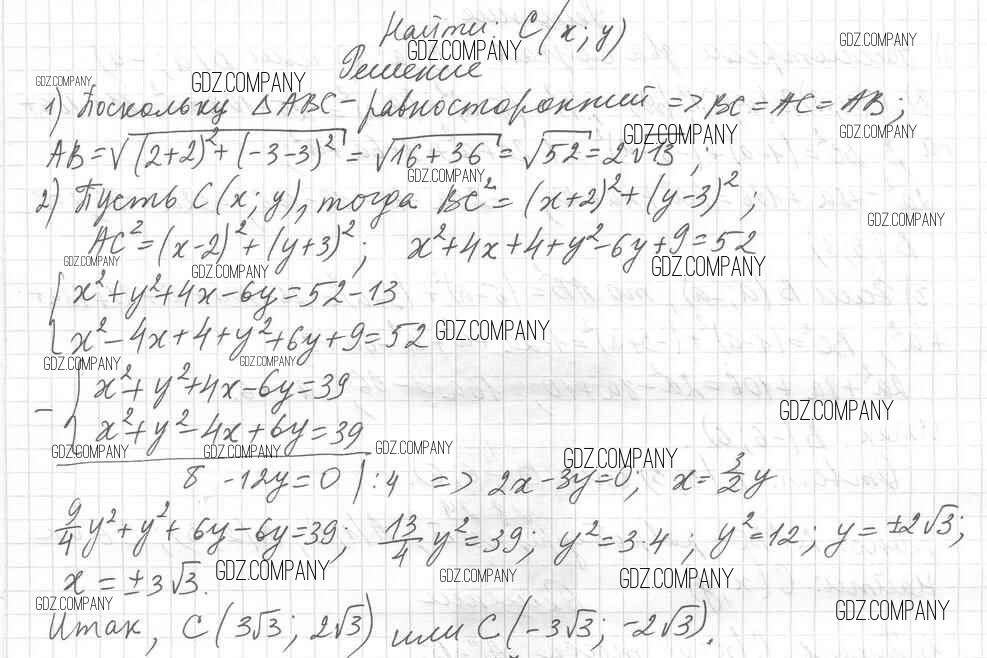 Найти: C(x; y)
GDZ.COMPANY GDZ.COMPANY
Решение
GDZ.COMPANY GDZ.COMPANY
1) Поскольку △ABC – равносторонний => BC = AC = AB;
GDZ.COMPANY GDZ.COMPANY
AB = √((2+2)² + (-3-3)²) = √(16+36) = √52 = 2√13;
GDZ.COMPANY
2) Пусть C(x; y), тогда BC² = (x+2)² + (y-3)²;
GDZ.COMPANY
AC² = (x-2)² + (y+3)²; x²+4x+4+y²-6y+9=52
GDZ.COMPANY GDZ.COMPANY GDZ.COMPANY
{ x²+y²+4x-6y=52-13
x²-4x+4+y²+6y+9=52 GDZ.COMPANY
GDZ.COMPANY GDZ.COMPANY
- { x²+y²+4x-6y=39
GDZ.COMPANY
x²+y²-4x+6y=39
GDZ.COMPANY GDZ.COMPANY GDZ.COMPANY GDZ.COMPANY
8 -12y=0 |:4 => 2x-3y=0; x=3/2 y
9/4 y²+y²+6y-6y=39; 13/4 y²=39; y²=3·4; y²=12; y=±2√3;
x = ±3√3. GDZ.COMPANY GDZ.COMPANY GDZ.COMPANY
GDZ.COMPANY GDZ.COMPANY
Итак, C(3√3; 2√3) или C(-3√3; -2√3).